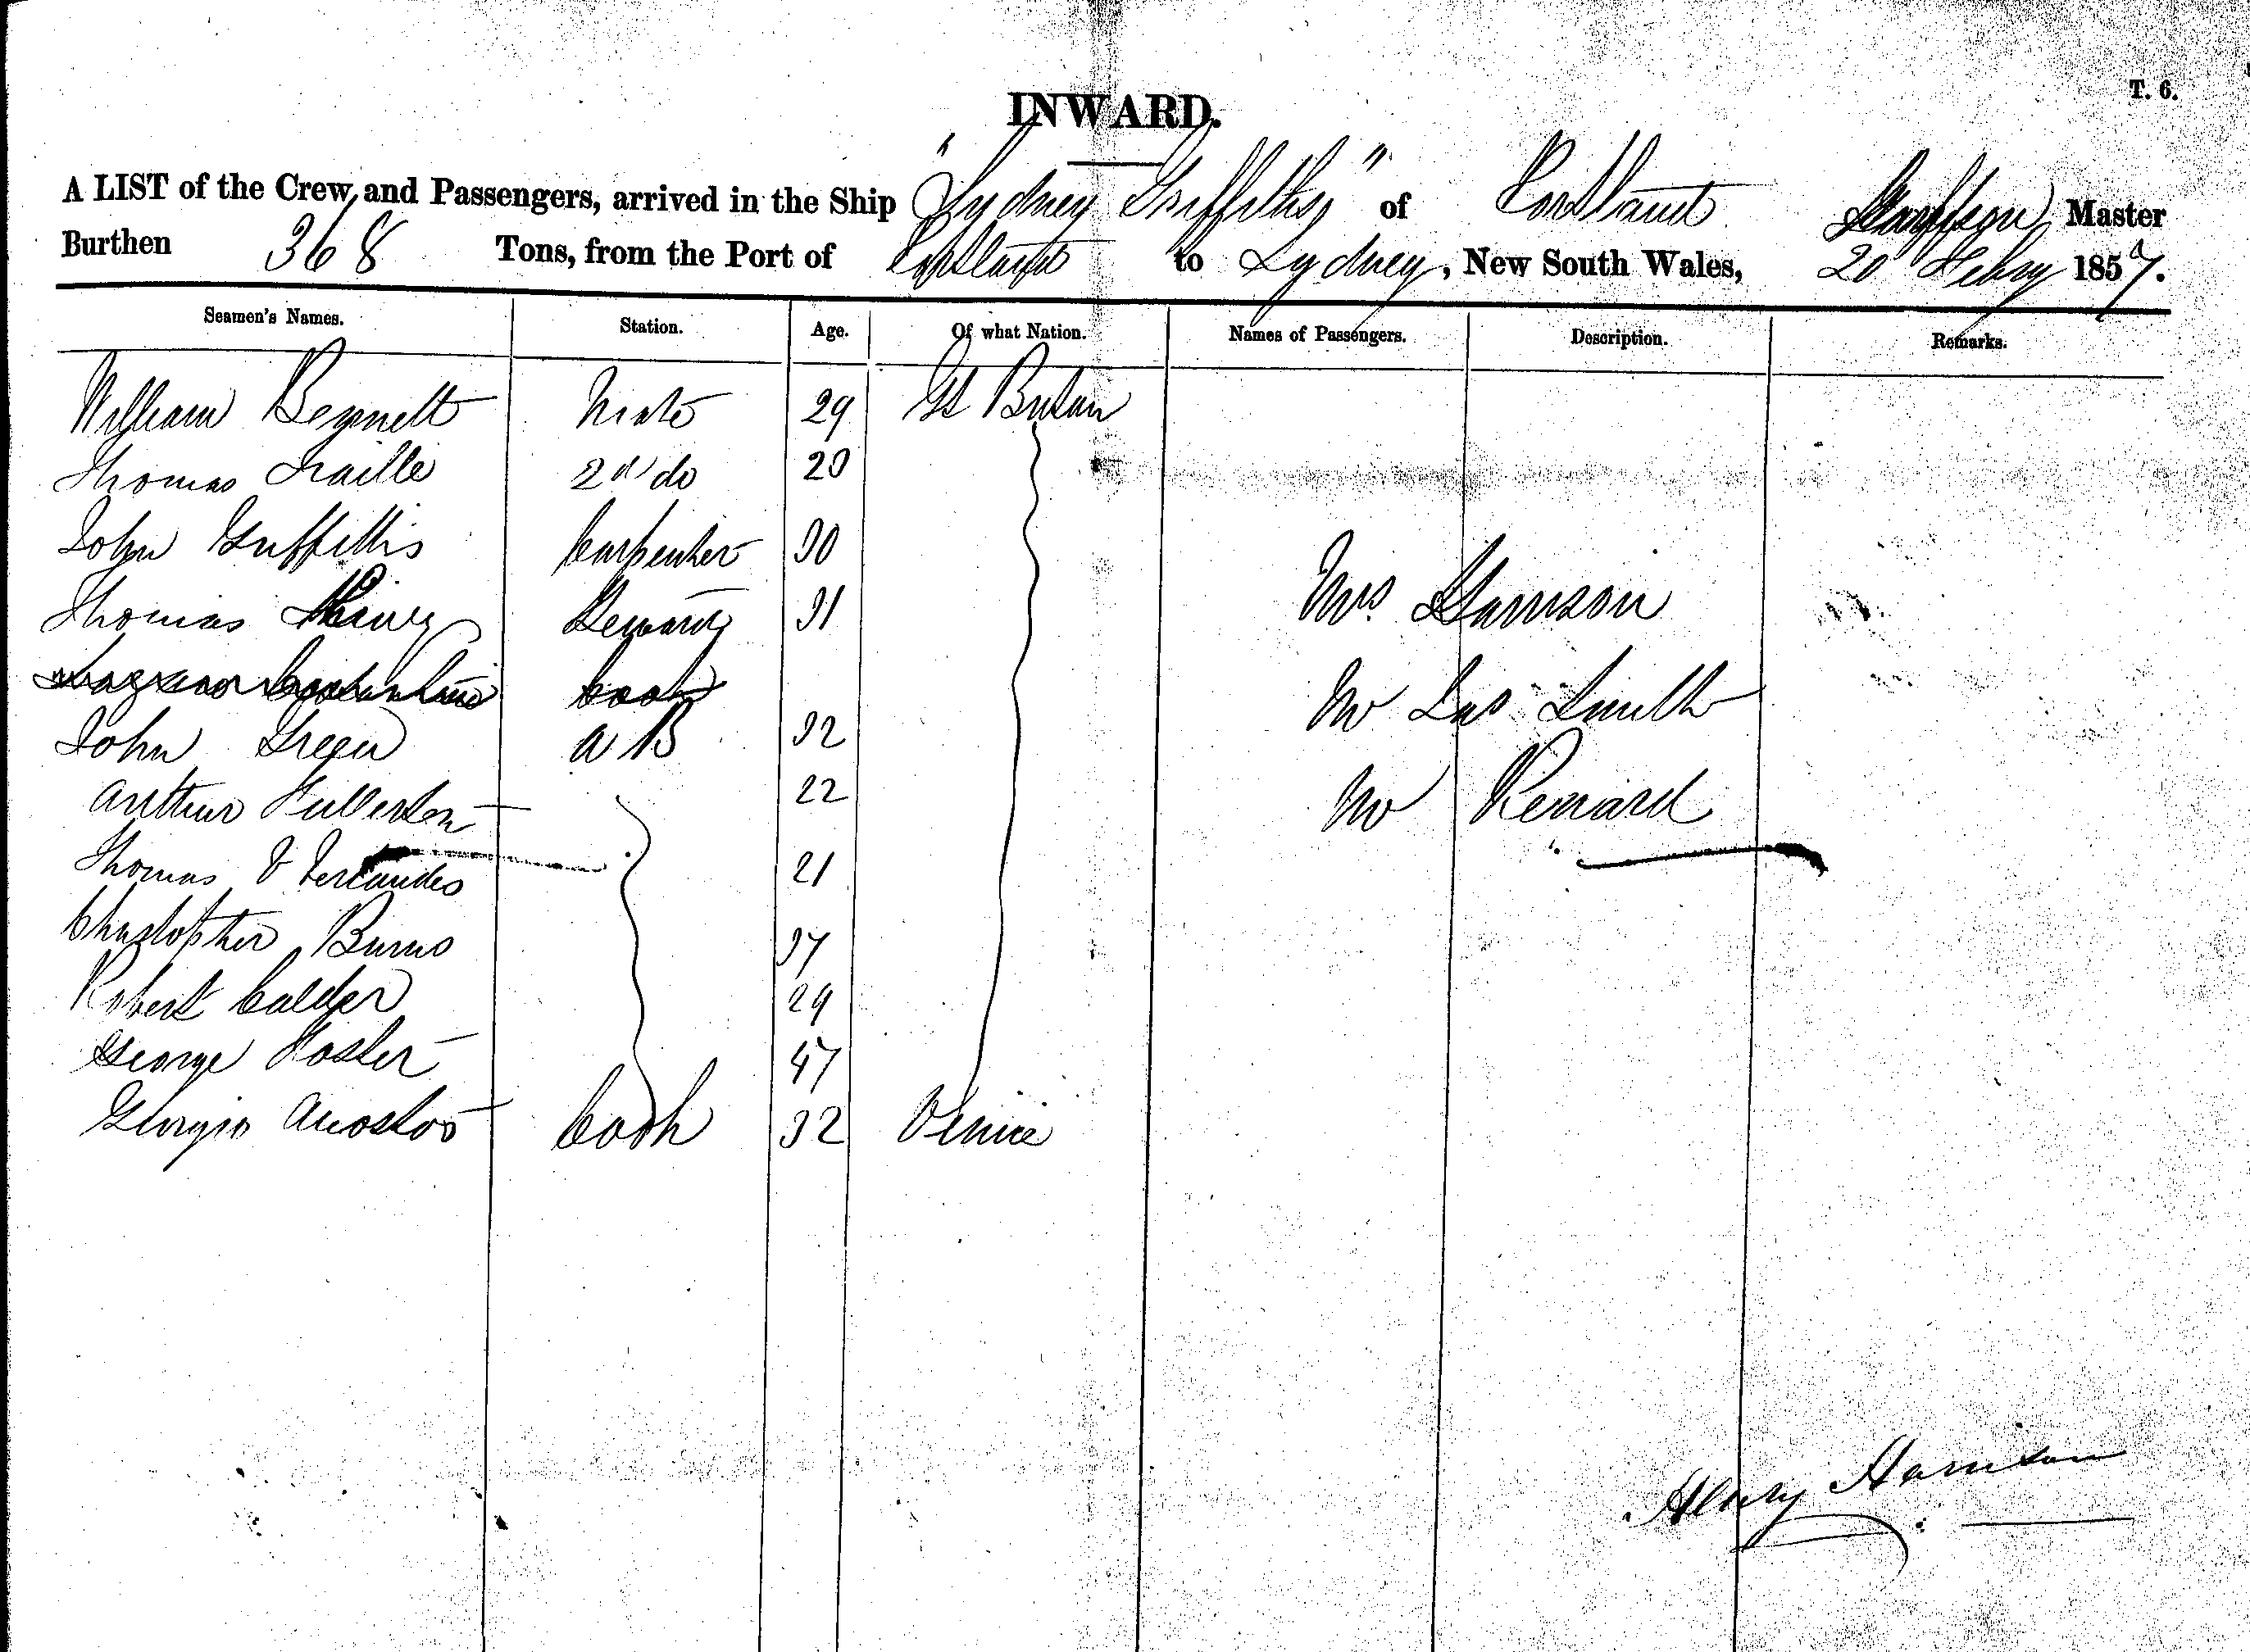 T. 6.
INWARD.
A LIST of the Crew and Passengers, arrived in the Ship "Sydney Griffiths" of Portland Master
Burthen 368 Tons, from the Port of Portland to Sydney, New South Wales, 20 Febry 1857.
Seamen's Names. Station. Age. Of what Nation. Names of Passengers. Description. Remarks.
William Bennett Mate 29 Gt Britain
Thomas 2d do 20
John Griffiths Carpenter 30
Thomas Steward 31 Mrs Harrison
Cook Mr Jas Smith
John A B 32
Arthur Fullerton 22 Mr Renard
Thomas 21
Christopher Burns 37
Robert Calder 29
George Foster 47
Giorgio Cook 32 Venice
Henry Harrison